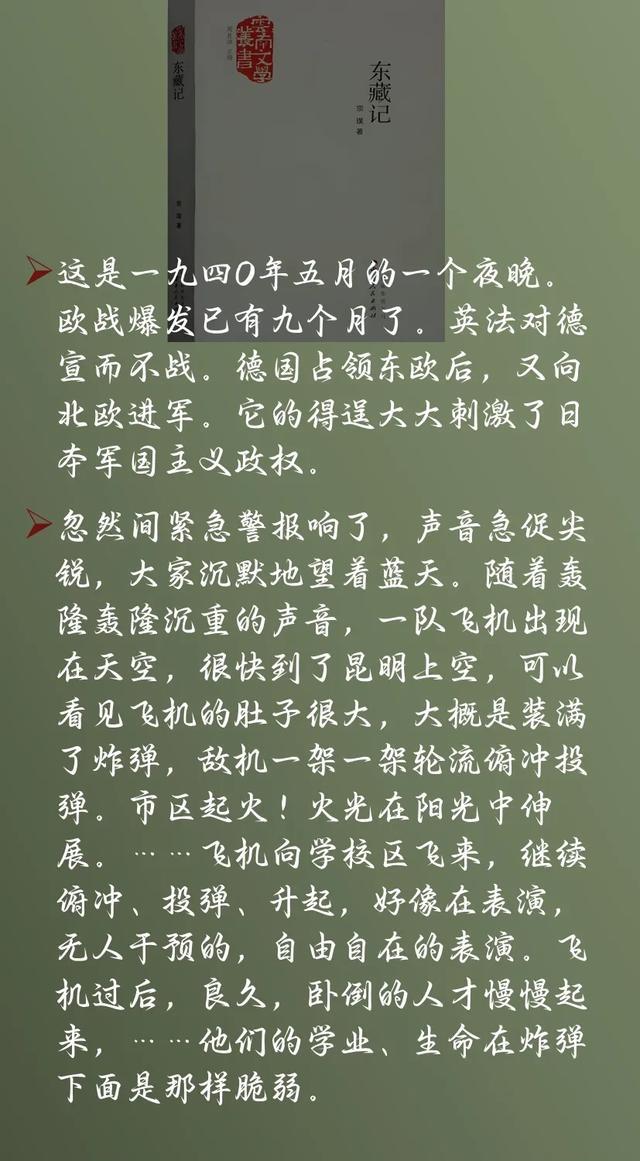 雲南文學
叢書
东藏记
宗璞 著
东藏记
宗 璞 著
这是一九四〇年五月的一个夜晚。
欧战爆发已有九个月了。英法对德
宣而不战。德国占领东欧后，又向
北欧进军。它的得逞大大刺激了日
本军国主义政权。
忽然间紧急警报响了，声音急促尖
锐，大家沉默地望着蓝天。随着轰
隆轰隆沉重的声音，一队飞机出现
在天空，很快到了昆明上空，可以
看见飞机的肚子很大，大概是装满
了炸弹，敌机一架一架轮流俯冲投
弹。市区起火！火光在阳光中伸
展。……飞机向学校区飞来，继续
俯冲、投弹、升起，好像在表演，
无人干预的，自由自在的表演。飞
机过后，良久，卧倒的人才慢慢起
来，……他们的学业、生命在炸弹
下面是那样脆弱。